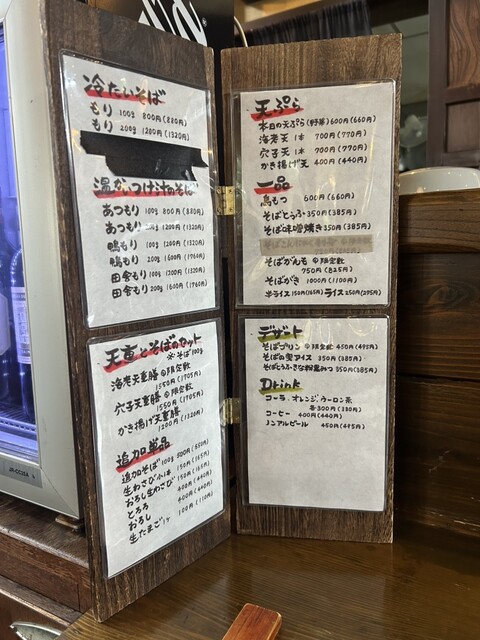 冷たいそば
もり 100g 800円(880円)
もり 200g 1200円(1320円)
温かいつけ汁のそば
あつもり 100g 800円(880円)
あつもり 200g 1200円(1320円)
鴨もり 100g 1200円(1320円)
鴨もり 200g 1600円(1760円)
田舎もり 100g 1200円(1320円)
田舎もり 200g 1600円(1760円)
天重とそばのセット
※そば100g
海老天重膳 @限定数
1550円(1705円)
穴子天重膳 @限定数
1550円(1705円)
かき揚げ天重膳
1200円(1320円)
追加単品
追加そば 100g 500円(550円)
生わさび 150円(165円)
おろし生わさび 150円(165円)
とろろ 400円(440円)
おろし 400円(440円)
生たまご1ヶ 100円(110円)
天ぷら
本日の天ぷら(野菜)600円(660円)
海老天 1本 700円(770円)
穴子天 1本 700円(770円)
かき揚げ天 400円(440円)
一品
鳥もつ 600円(660円)
そばとうふ 350円(385円)
そば味噌焼き 350円(385円)
そばがんも @限定数
750円(825円)
そばがき 1000円(1100円)
半ライス 150円(165円) ライス 250円(275円)
デザート
そばプリン @限定数 450円(495円)
そばの実アイス 350円(385円)
そばとうふきな粉黒みつ 350円(385円)
Drink
コーラ・オレンジ・ウーロン茶
各300円(330円)
コーヒー 400円(440円)
ノンアルビール 450円(495円)